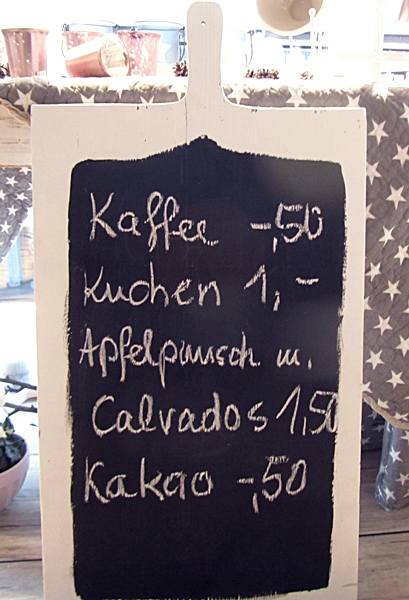 Kaffee -,50
Kuchen 1,-
Apfelpunsch m.
Calvados 1,50
Kakao -,50